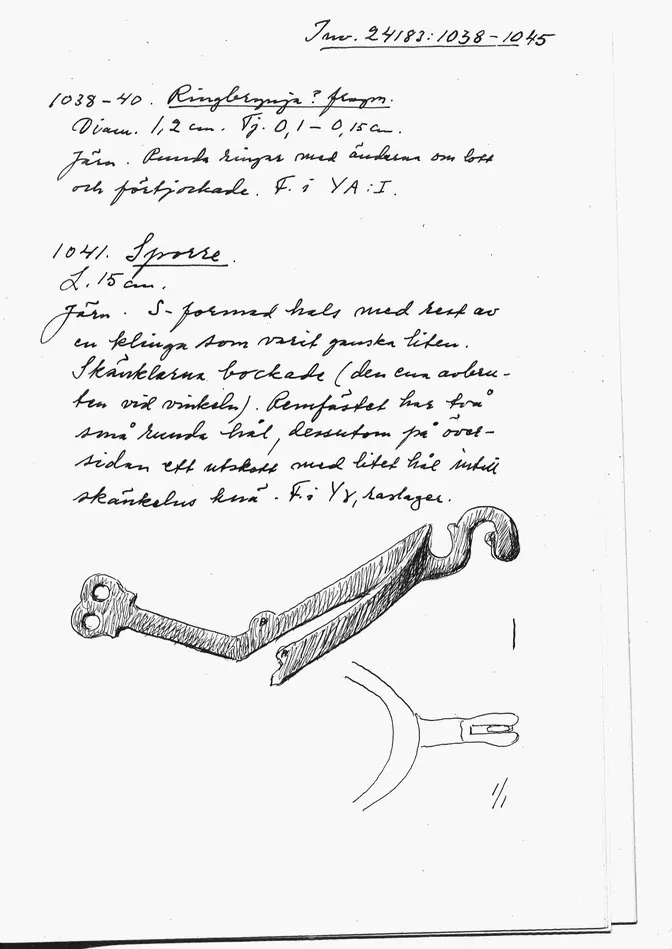 Inv. 24183:1038-1045
1038-40. Ringbrynja? fragm.
Diam. 1,2 cm. Tj. 0,1-0,15 cm.
Järn. Runda ringar med ändarna om lott
och förtjockade. F. i YA:I.
1041. Sporre.
L. 15 cm.
Järn. S-formad hals med rest av
en klinga som varit ganska liten.
Skänklarna bockade (den ena avbru-
ten vid vinkeln). Remfästet har två
små runda hål, dessutom på över-
sidan ett utskott med litet hål intill
skänkelns knä. F. i Yγ, raslager.
1/1